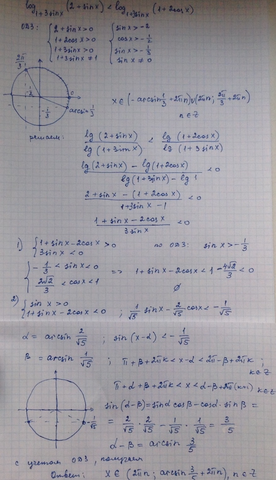 log_{1+3sinx} (2+sinx) < log_{1+3sinx} (1+2cosx)
ОДЗ: { 2+sinx>0 { sinx>-2
1+2cosx>0 cosx>-1/2
1+3sinx>0 sinx>-1/3
1+3sinx≠1 sinx≠0
2π/3
-1/2
0
-1/3
-arcsin 1/3
x∈(-arcsin 1/3+2πn; 2πn)∪(2πn; 2π/3+2πn)
n∈Z
решаем:
lg(2+sinx) / lg(1+3sinx) < lg(1+2cosx) / lg(1+3sinx)
(lg(2+sinx) - lg(1+2cosx)) / (lg(1+3sinx) - lg1) < 0
(2+sinx-(1+2cosx)) / (1+3sinx-1) < 0
(1+sinx-2cosx) / 3sinx < 0
1) { 1+sinx-2cosx>0 по ОДЗ: sinx>-1/3
{ -1/3<sinx<0
2√2/3<cosx<1 => 1+sinx-2cosx<1-4√2/3<0
∅
2) { sinx>0
1+sinx-2cosx<0 ; 1/√5 sinx-2/√5 cosx<-1/√5
α=arcsin 2/√5 ; sin(x-α)<-1/√5
β=arcsin 1/√5 ; π+β+2πk<x-α<2π-β+2πk ; k∈Z
π+α+β+2πk<x<α-β+2π(k+1) k∈Z
-1/√5
sin(α-β)=sinα cosβ-cosα·sinβ=
=2/√5·2/√5-1/√5·1/√5=3/5
α-β=arcsin 3/5
с учетом ОДЗ, получаем
Ответ: x∈(2πn; arcsin 3/5+2πn), n∈Z